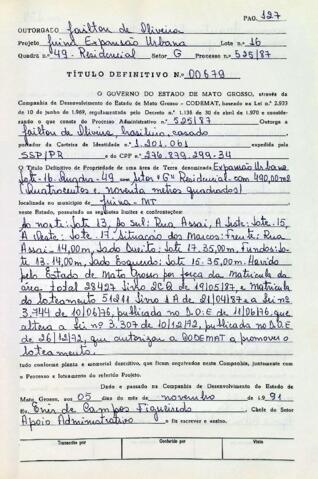 PAG. 127
OUTORGADO Jailton de Oliveira
Projeto Juina Expansão Urbana Lote n.º 16
Quadra n.º 49 - Residencial Setor G Processo n.º 525/87
TÍTULO DEFINITIVO N.º 00679
O GOVERNO DO ESTADO DE MATO GROSSO, através da
Companhia de Desenvolvimento do Estado de Mato Grosso - CODEMAT, baseando na Lei n.º 2.933
de 10 de junho de 1969, regulamentada pelo Decreto n.º 1.138 de 30 de abril de 1.970 e conside-
rando o que consta do Processo Administrativo n.º 525/87 Outorga a
Jailton de Oliveira, brasileiro, casado
portador da Carteira de Identidade n.º 1.201.061 expedida pela
SSP/PR e do CPF n.º 276.879.299-34
O Título Definitivo de Propriedade de uma área de Terra denominada Expansão Urbana
Lote-16. Quadra-49 Setor "G" Residencial com 490,00m2
(Quatrocentos e, noventa metros quadrados)
localizada no município de Juina - MT
neste Estado, possuindo os seguintes limites e confrontações:
Ao norte: Lote 13, ao Sul: Rua Assai, A Leste: Lote-15,
A Oeste: Lote 17. Situação dos Marcos: Frente: Rua
Assai-14,00m, Lado Direito: Lote 17.35,00m. Fundos: Lo-
te 13.14,00m, Lado Esquerdo: Lote 15.35,00m. Havido
pelo Estado de Mato Grosso por força da matricula da
área total 28427 Livro 2CQ de 19/05/87, e Matricula
do Loteamento 51811 Livro 1A de 21/04/87 e a lei nº
3.744 de 10/06/76, publicada no D.O.E de 11/06/76 que
altera a lei nº 3.307 de 10/12/72, publicada no D.O.E
de 26/12/72, que autorizou a CODEMAT a promover o
Loteamento.
tudo conforme planta e memorial descritivo, que ficam arquivados nesta Companhia, juntamente com
o Processo e loteamento do referido Projeto.
Dado e passado na Companhia de Desenvolvimento do Estado de
Mato Grosso, aos 05 dias do mês de novembro de 1.9 91
Eu Enir de Campos Figueiredo, Chefe do Setor
Apoio Administrativo o fiz escrever e assino.
Transcrito por Conferido por Visto